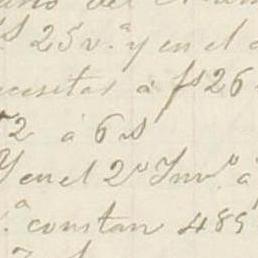 25 v.ª y en el
necesitas á fs 26
2 á 6 s
Y en el 2º Invº á
constan 485